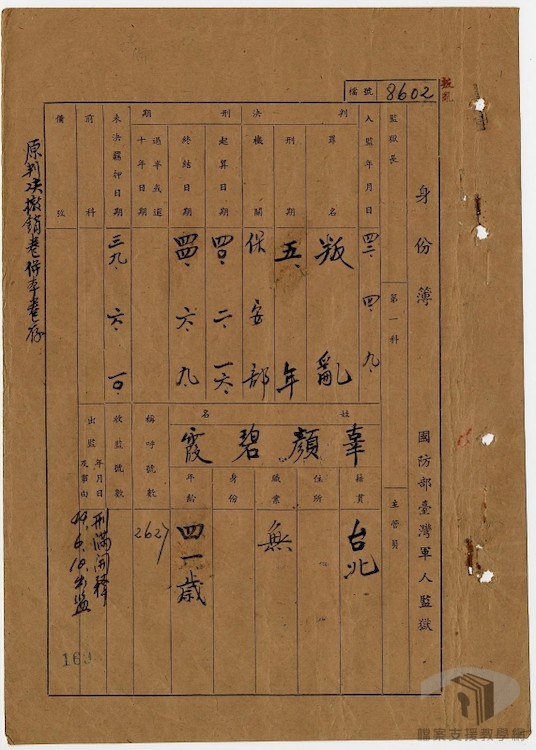 檔號 8602
身份簿 國防部臺灣軍人監獄
監獄長 第一科 主管員
入監年月日 四三、四、九、
判決
罪名 叛亂
刑期 五、年
機關 保安部
刑期
起算日期 四〇、二、一六、
終結日期 四四、六、九
過半或逾十年日期
未決羈押日期 三九、六、一〇、
前科
備攷
原判決撤銷卷併本卷存
姓名 辜顏碧霞
籍貫 台北
住所
職業 無
身份
年齡 四一歲
稱呼號數 2627
收監號數
出監年月日及事由 刑滿開釋
檔案支援教學網